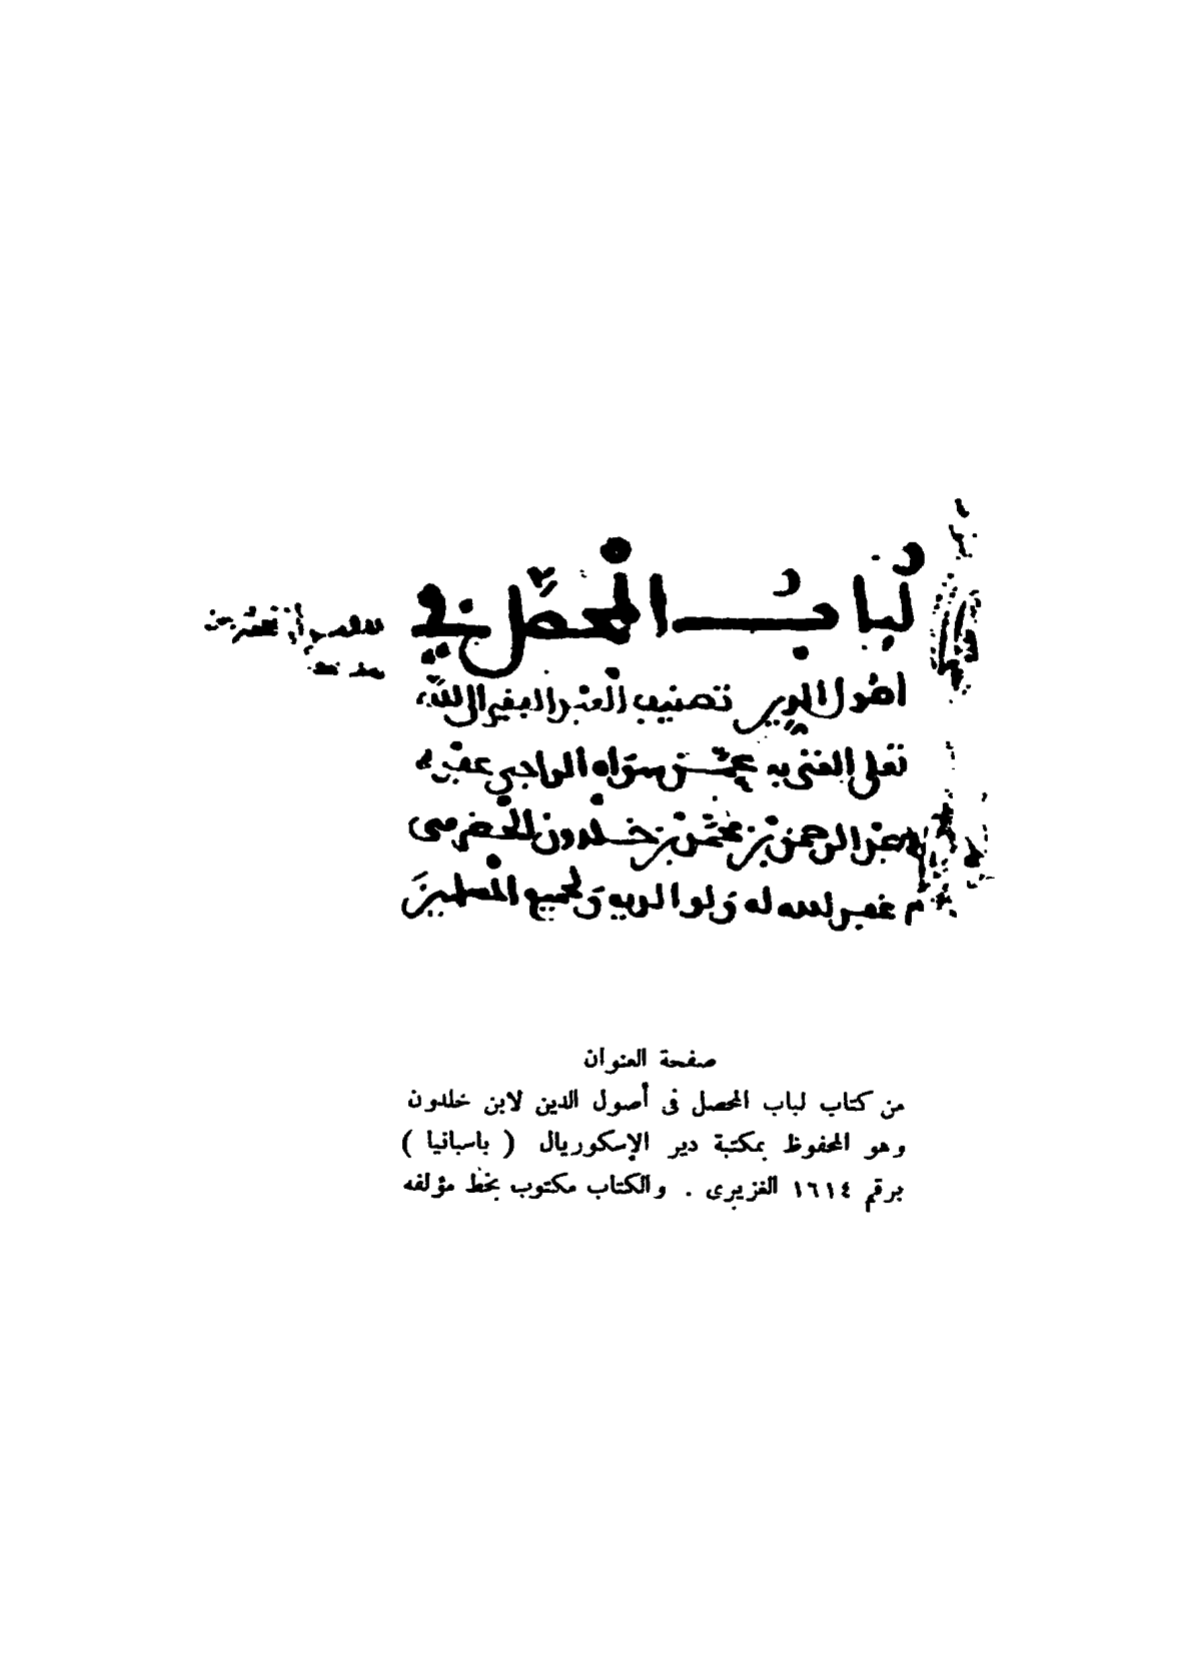 لُباب المحصّل في
أصُول الدين تصنيف العبْد الفقير الى الله
تعلى الغني به عمّن سوَاه الراجي عفوه
عبْد الرحمن بْن محمّد بْن خلدون الحضرمي
غفر الله له وَلوالديه وَلجميع المُسلمينَ
صفحة العنوان
من كتاب لباب المحصل فى أصول الدين لابن خلدون
وهو المحفوظ بمكتبة دير الإسكوريال ( باسبانيا )
برقم ١٦١٤ الغزيرى . والكتاب مكتوب بخط مؤلفه